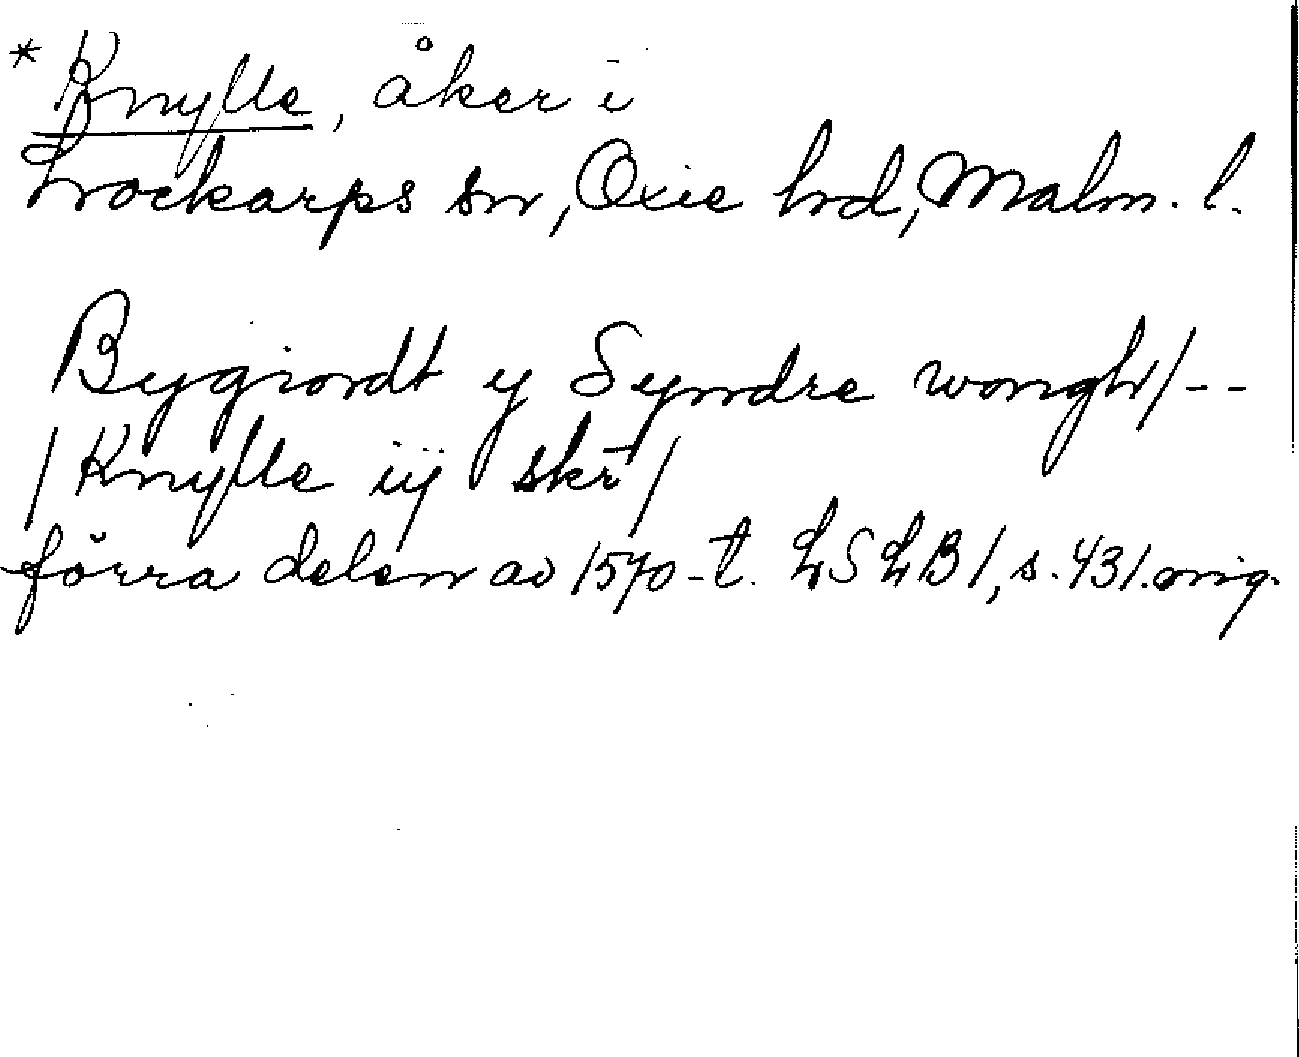 * Knylle, åker i
Lockarps sn, Oxie hrd, Malm. l.
Bygiordt y Syndre wongh/--
/Knylle iij skr/
förra delen av 1570-t. LSLB1, s. 431. orig.